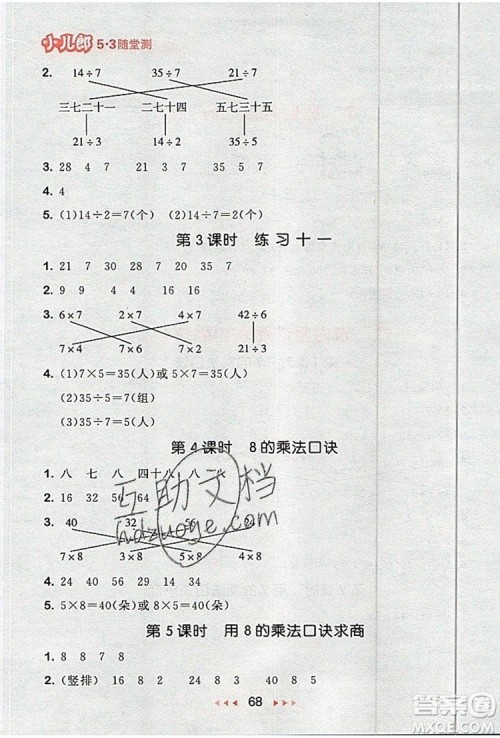 小儿郎 5·3随堂测
2. 14÷7 35÷7 21÷7
三七二十一 二七十四 五七三十五
21÷3 14÷2 35÷5
3. 28 4 7 21 3 7 35 5 7
4. 4
5. (1)14÷2=7(个) (2)14÷7=2(个)
第3课时 练习十一
1. 21 7 30 20 35 7
2. 9 9 4 4 16 16
3. 6×7 2×7 4×7 42÷6
7×4 7×6 7×2 21÷3
4. (1)7×5=35(人)或5×7=35(人)
(2)35÷5=7(组)
(3)35÷7=5(人)
第4课时 8的乘法口诀
1. 八 七 八 四十八 八 八
2. 16 32 56 64
3. 40 32 56 24
7×8 3×8 5×8 4×8
4. 64
5. 5×8=40(朵)或8×5=40(朵)
第5课时 用8的乘法口诀求商
1. 8 8 7 8
2. (竖排) 16 8 2 24 8 3 40 8 5
68
互助文档
hdzuoge.com
答案圈
MXQE.COM